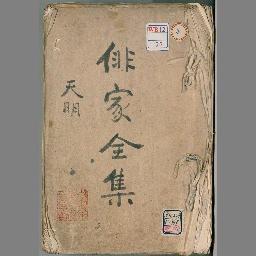 俳家全集
天明